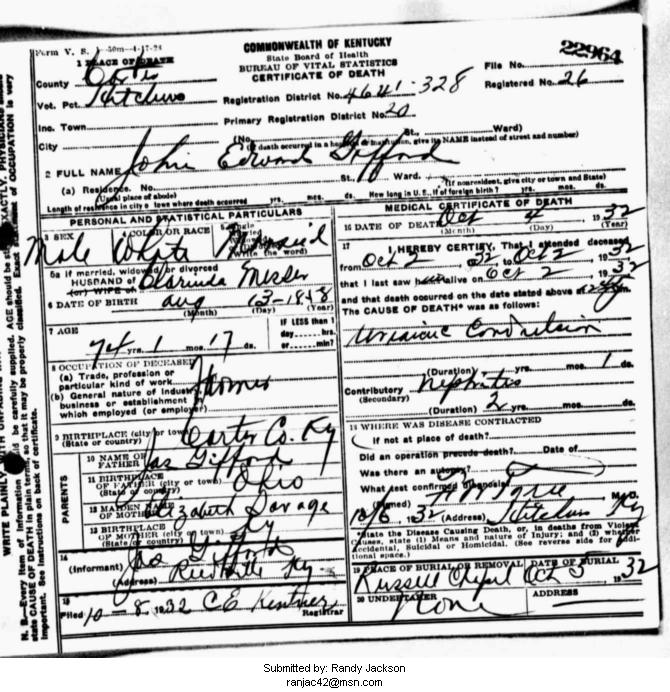 Form V. S. 1-50m-4-17-28
COMMONWEALTH OF KENTUCKY
State Board of Health
BUREAU OF VITAL STATISTICS
CERTIFICATE OF DEATH
22964
File No.
Registered No. 26
1 PLACE OF DEATH
County
Vot. Pct. Hitchins
Registration District No. 4641-328
Inc. Town
Primary Registration District No. 20
City (No. St., Ward)
(If death occurred in a hospital or institution, give its NAME instead of street and number)
2 FULL NAME John Edward Gifford
(a) Residence. No. St., Ward.
(Usual place of abode) (If nonresident, give city or town and State)
Length of residence in city or town where death occurred yrs. mos. ds. How long in U. S., if of foreign birth? yrs. mos. ds.
PERSONAL AND STATISTICAL PARTICULARS
3 SEX 4 COLOR OR RACE 5 Single
Married
Widowed
(Write the word)
Male White
5a If married, widowed or divorced
HUSBAND of
(or) WIFE of
6 DATE OF BIRTH Aug 13-1858
(Month) (Day) (Year)
7 AGE IF LESS than 1
day hrs.
74 yrs. 1 mos. 17 ds. or min?
8 OCCUPATION OF DECEASED
(a) Trade, profession or
particular kind of work Farmer
(b) General nature of Industry,
business or establishment
which employed (or employer)
9 BIRTHPLACE (city or town) Carter Co. Ky
(State or country)
PARENTS
10 NAME OF
FATHER Jas Gifford
11 BIRTHPLACE
OF FATHER (city or town) Ohio
(State or country)
12 MAIDEN NAME
OF MOTHER Elizabeth Savage
13 BIRTHPLACE
OF MOTHER (city or town) Ky
(State or country)
14
(Informant) Jas Gifford
(Address) Ky
15
Filed 10-8, 1932 C E
Registrar
MEDICAL CERTIFICATE OF DEATH
16 DATE OF DEATH Oct 4 1932
(Month) (Day) (Year)
17 I HEREBY CERTIFY, That I attended deceased
from Oct 2 32 to Oct 2 1932
that I last saw h alive on Oct 2 1932
and that death occurred on the date stated above at
The CAUSE OF DEATH* was as follows:
(Duration) yrs. mos. 1 ds.
Contributory Nephritis
(Secondary)
(Duration) 2 yrs. mos. ds.
18 WHERE WAS DISEASE CONTRACTED
if not at place of death?
Did an operation precede death? Date of
Was there an autopsy?
What test confirmed diagnosis?
(Signed) M.D.
10/6 32 (Address) Hitchins Ky
*State the Disease Causing Death, or, in deaths from Violent
Causes, state (1) Means and nature of Injury; and (2) whether
Accidental, Suicidal or Homicidal. (See reverse side for additional space.)
19 PLACE OF BURIAL OR REMOVAL DATE OF BURIAL
Russell Chapel Oct 5 1932
20 UNDERTAKER ADDRESS
None
N. B.—Every item of information should be carefully supplied. AGE should be stated EXACTLY. PHYSICIANS should
state CAUSE OF DEATH in plain terms, so that it may be properly classified. Exact statement of OCCUPATION is very
important. See instructions on back of certificate.
Submitted by: Randy Jackson
ranjac42@msn.com